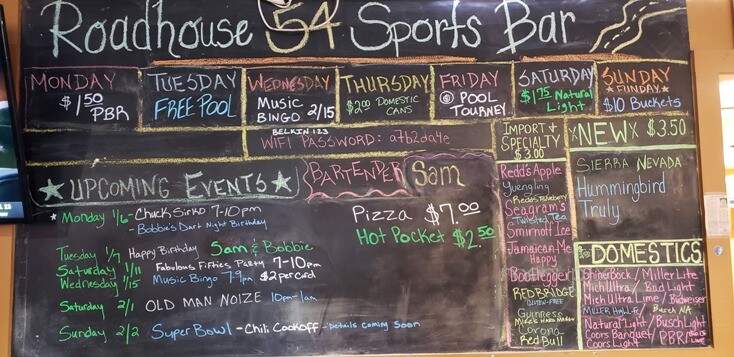 Roadhouse 54 Sports Bar
MONDAY
$1.50
PBR
TUESDAY
FREE POOL
WEDNESDAY
MUSIC
BINGO 2/15
THURSDAY
$2.00 DOMESTIC
CANS
FRIDAY
@ POOL
TOURNEY
SATURDAY
$1.75 Natural
Light
SUNDAY
FUNDAY
$10 BUCKETS
BELKIN 123
WIFI PASSWORD: a7b2da4e
UPCOMING EVENTS
BARTENDER Sam
Monday 1/6 - Chuck Sirko 7-10pm
- Bobbie's Dart Night Birthday
Tuesday 1/7 Happy Birthday Sam & Bobbie
Saturday 1/11 Fabulous Fifties Party 7-10pm
Wednesday 1/15 Music Bingo 7-9pm $2 per card
Saturday 2/1 OLD MAN NOIZE 10pm-1am
Sunday 2/2 Super Bowl - Chili Cookoff - Details coming soon
Pizza $7.00
Hot Pocket $2.50
IMPORT &
SPECIALTY
$3.00
Redd's Apple
Yuengling
Seagram's
Twisted Tea
Smirnoff Ice
Jamaican Me
Happy
Bootlegger
REDBRIDGE
GLUTEN-FREE
Guinness
Mike's Hard
Corona
Red Bull
NEW $3.50
SIERRA NEVADA
Hummingbird
Truly
DOMESTICS
Shiner Bock / Miller Lite
Mich Ultra / Bud Light
Mich Ultra Lime / Budweiser
MILLER High Life / Busch NA
Natural Light / Busch Light
Coors Banquet / PBR
Coors Light